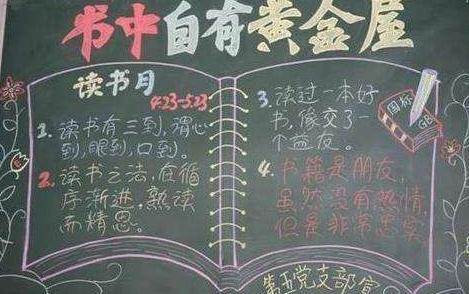 书中自有黄金屋
读书月
4.23-5.23
1. 读书有三到,谓心
到,眼到,口到。
2. 读书之法,在循
序渐进,熟读
而精思。
3. 读过一本好
书,像交了一
个益友。
国标
GB
4. 书籍是朋友,
虽然没有热情,
但是非常忠实
第五党支部宣